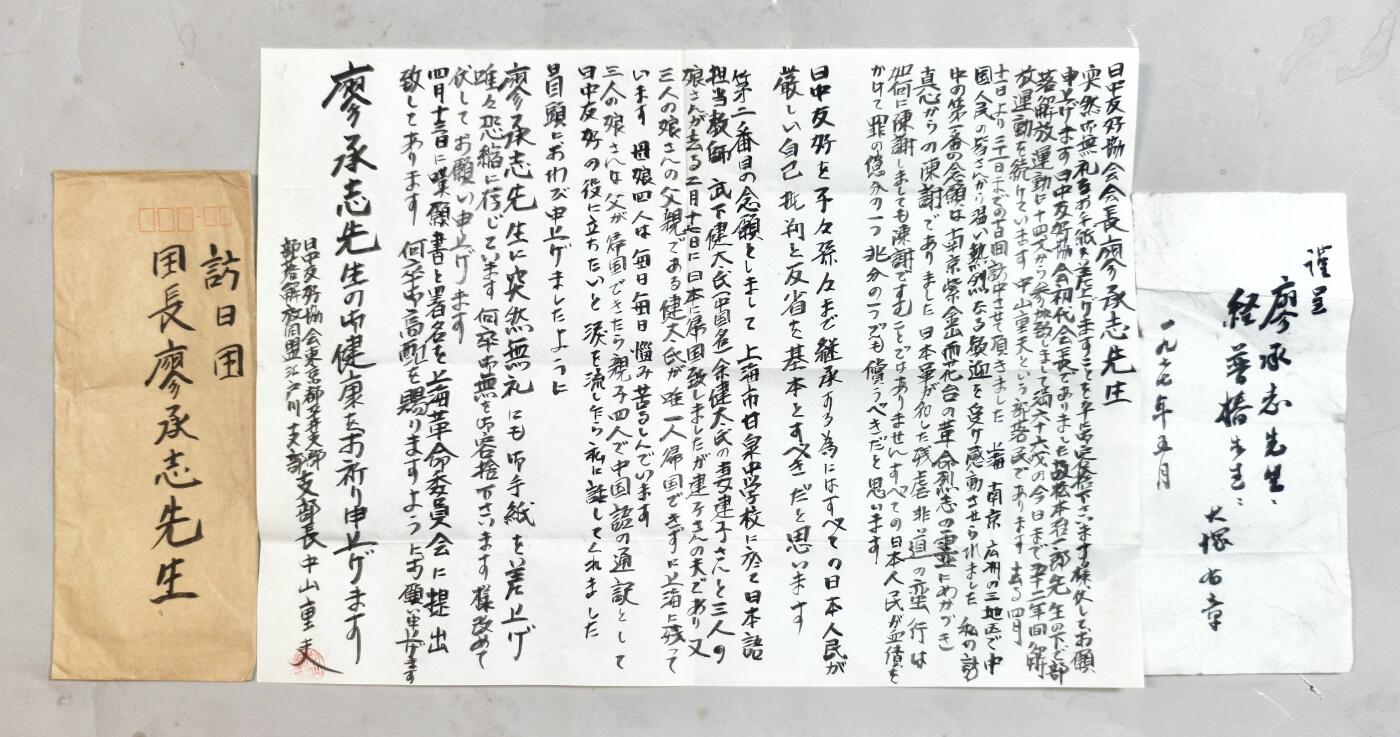 謹呈
廖承志先生:
経普椿先生:
大塚有章
一九七七年五月
日中友好協会会長廖承志先生
突然御無礼なお手紙を差上げますことを平に御容捨下さいます様伏してお願
申上げます 日中友好協会初代会長でありました故松本治一郎先生の下で部
落解放運動に十四才から参加致しまして満六十六才の今日まで五十二年間解
放運動を続けています 中山重夫という部落民であります 去る四月
十一日より二十一日までの十日間訪中させて頂きました 上海 南京 広州の三地区で中
国人民の皆さんから温い熱烈なる歓迎を受け感動させられました 私の訪
中の第一番の念願は南京紫金山雨花台の革命烈志の霊にぬかづき
真心からの陳謝でありました 日本軍が犯した残虐非道の蛮行は
如何に陳謝しましても陳謝ですむことではありませんすべての日本人民が血債を
かけて罪の億分の一つ兆分の一つでも償うべきだと思います
日中友好を子々孫々まで継承する為にはすべての日本人民が
厳しい自己批判と反省を基本とすべきだと思います
第二番目の念願としまして 上海市甘泉中学校に於て日本語
担当教師 武下健太氏(中国名)余健太氏の妻建子さんと三人の
娘さんが去る二月十七日に日本に帰国致しましたが建子さんの夫であり又
三人の娘さんの父親である健太氏が唯一人帰国できずに上海に残って
います 母娘四人は毎日毎日悩み苦るしんでいます
三人の娘さんは父が帰国できたら親子四人で中国語の通訳として
日中友好の役に立ちたいと涙を流しながら私に話してくれました
冒頭におわび申上げましたように
廖承志先生に突然無礼にも御手紙を差上げ
唯々恐縮に存じています 何卒御無礼を御容捨下さいます様改めて
伏してお願い申上げます
四月十三日に嘆願書と署名を上海革命委員会に提出
致してあります 何卒御高配を賜りますようにお願い申上げます
廖承志先生の御健康をお祈り申上げます
日中友好協会東京都 支部 支部長 中山重夫
部落解放同盟江戸川支部
訪日団
団長廖承志先生